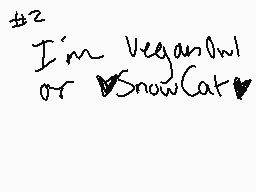 #2
I'm VeganOwl
or ♥SnowCat♥